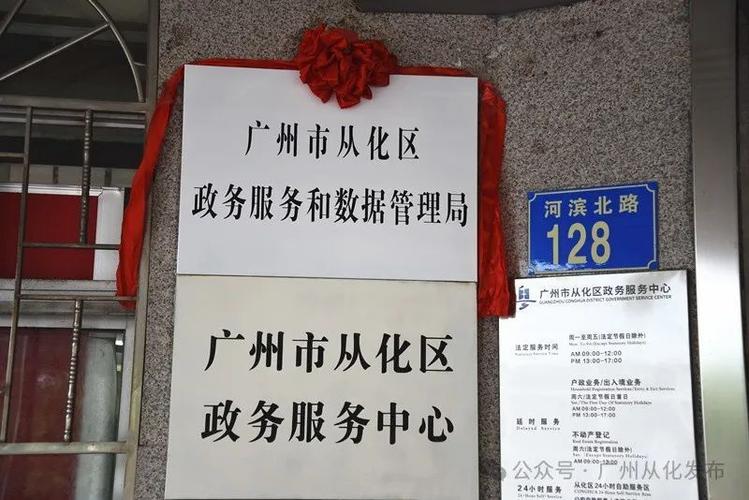 广州市从化区
政务服务和数据管理局
广州市从化区
政务服务中心
河滨北路
128
广州市从化区政务服务中心
GUANGZHOU CONGHUA DISTRICT GOVERNMENT SERVICE CENTER
法定服务时间
Statutory Service Time
周一至周五(法定节假日除外)
Mon. To Fri.(Except Statutory Holidays)
AM 09:00-12:00
PM 13:00-17:00
延时服务
Delayed Service
户政业务/出入境业务
Household Registration Services/Entry & Exit Services
周六/法定节假日首日
Sat./The First Day Of Statutory Holidays
AM 09:00-12:00
PM 13:00-17:00
不动产登记
Real Estate Registration
周六(法定节假日除外)
Sat. (Except Statutory Holidays)
AM 09:00-12:00
PM 13:00-17:00
24小时服务
24-Hour Self Service
从化区24小时自助服务区
公众号·广州从化发布